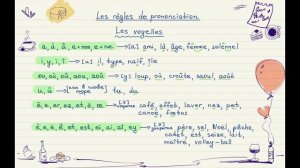 Les règles de prononciation.
Les voyelles
a, à, â, e+mm, e+nn → [a] ami, là, âge, femme, solennel
i, y, î, ï → [i], type, naïf, île
ou, où, oû, aou, aoû → [y] loup, où, croûte, saoul, août
u, û → tu, du
café, effet, laver, nez, pet, canoë, fœtus
père, sel, Noël, pêche, cadet, est, seize, lait, maître, volley-ball